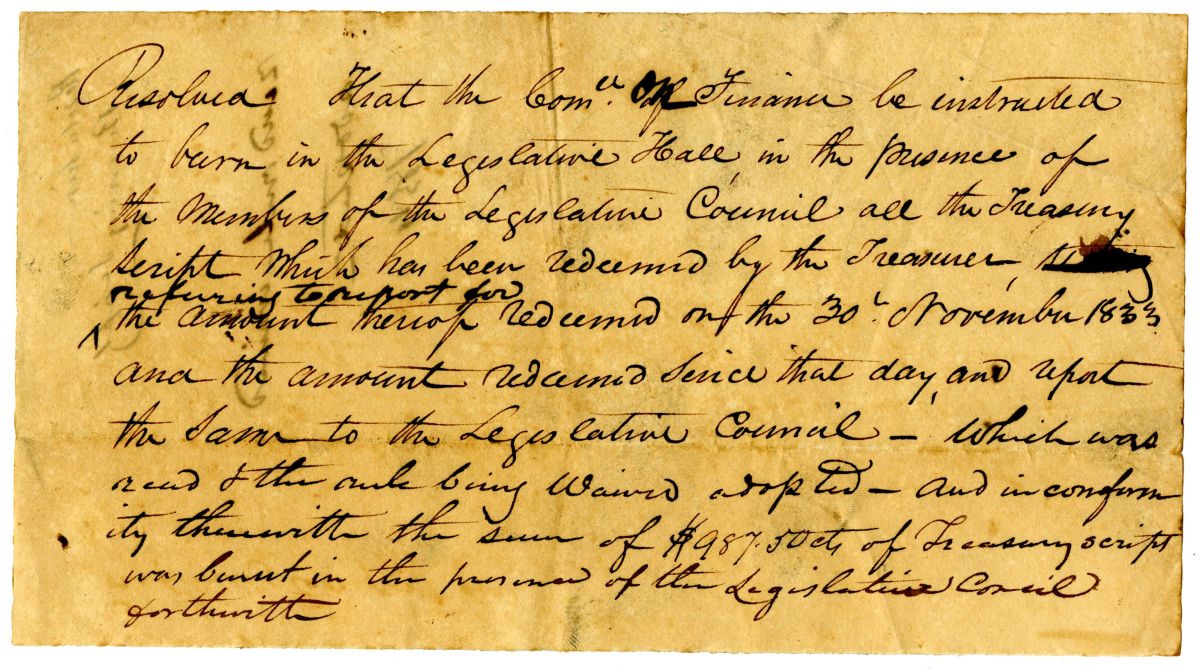 Resolved That the Comee. On Finance be instructed
to burn in the Legislative Hall, in the presence of
the Members of the Legislative Council all the Treasury
Script which has been redeemed by the Treasurer,
refering to report for
the amount thereof redeemed on the 30t. November 1833
and the amount redeemed since that day, and report
the same to the Legislative Council – which was
read & the rule being waived adopted – And in conform
ity therewith the sum of $987.50cts of Treasury script
was burnt in the presence of the Legislative Concil
forthwith